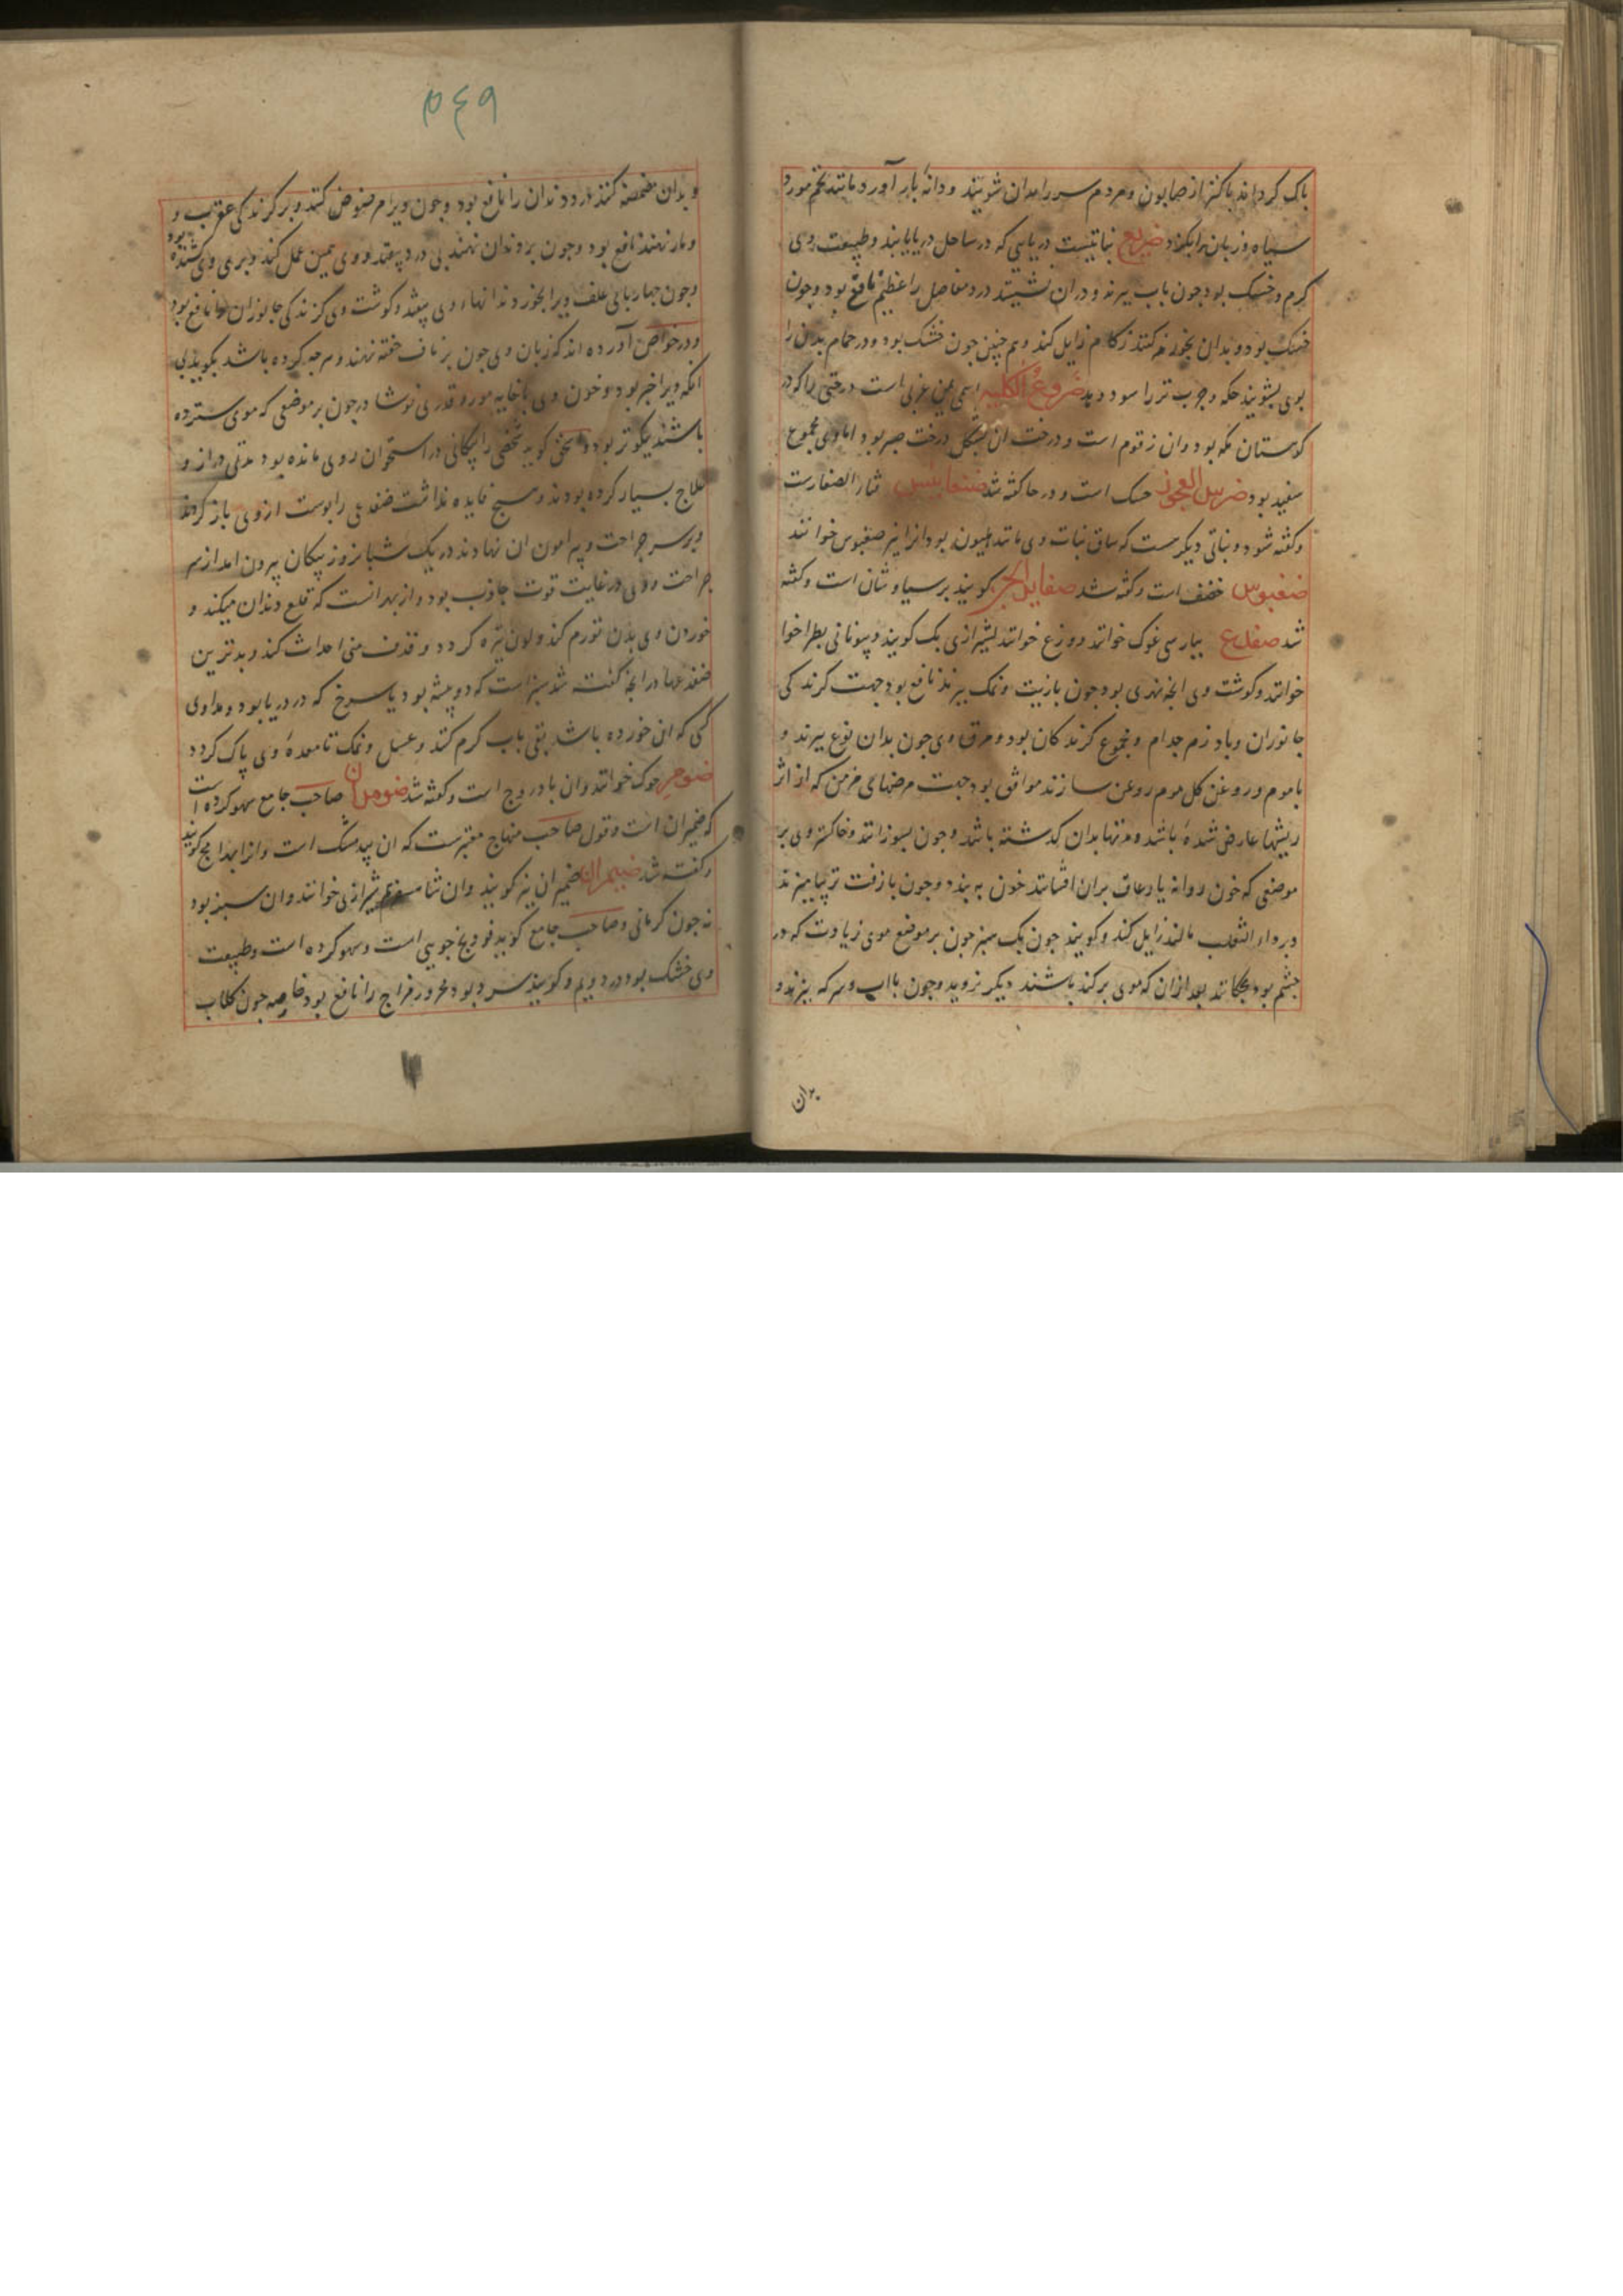 پاک کرداند پاکتر از صابون و مردم سر را بدان شویند و دانه بار آورد مانند تخم مورد
سیاه و زبان را بکزد ضریع نباتیست دریایی که در ساحل دریا یابند و طبیعت وی
کرم و خشک بود جون باب بپزند و دران نشینند درد مفاصل را عظیم نافع بود و جون
خشک بود و بدان بخور کنند زکام زایل کند و هم جنین جون خشک بود و در حمام بدن را
بوی بشویند حکه و جرب تر را سود دهد ضروع الکلبه اسمی است درختی را که در
کوهستان مکه بود وان زقوم است و درخت ان بشکل درخت صبر بود اما وی مجموع
سفید بود ضرس العجوز حسک است و در حا کفته شد ضغابیس ثمار الصغارست
و کفته شود و نباتی دیکرست که ساق نبات وی مانند هلیون بود انرا نیز ضغبوس خوانند
ضغبوس مخفف است و کفته شد ضفایر الجن کویند پرسیاوشان است و کفته
شد ضفدع بپارسی غوک خوانند و وزغ خوانند بشیرازی بک کویند و بیونانی بطراخوا
خوانند و کوشت وی انجه نهری بود جون با زیت و نمک بپزند نافع بود جهت کزندکی
جانوران و باد زهر جذام و مجموع کزندکان بود و مرق وی جون بدان نوع بپزند و
با موم و روغن کل موم روغن سازند موافق بود جهت مرضهای مزمن که از اثر
ریشها عارض شده باشد و مدتها بدان کذشته باشد و جون بسوزانند و خاکستر وی بر
موضعی که خون روانه یا رعاف بران افشانند خون به بندد و جون با زفت تر بیامیزند
و بر داء الثعلب مالند زایل کند و کویند جون بک سبز جون بر موضع موی زیادت که در
جشم بود بجکانند بعد ازان که موی برکنده باشند دیکر نروید و جون با اب و سرکه بپزند و
بدان
۵۴۹
و بدان مضمضه کنند درد دندان را نافع بود و جون ویرا مرضوض کنند و بر کزندکی عقرب و
و مار نهند نافع بود و جون بر دندان نهند بی درد بیفتد و وی همین عمل کند و بری وی کشنده بود
و جون جهارپایی علف ویرا بخورد دندانهاء وی بیفتد و کوشت وی کزندکی جانوران را نافع بود
و در خواص آورده اند که زبان وی جون بر ناف خفته نهند و هرجه کرده باشد بکوید بی
انکه ویرا خبر بود و خون وی با خایه مور و قدری نوشادر جون بر موضعی که موی سترده
باشند نیکوتر بود و کوید شخصی را پیکانی در استخوان روی مانده بود مدتی دراز و
علاج بسیار کرده بودند و هیج فایده نداشت ضفدعی را پوست از وی باز کردند
و بر سر جراحت و پیرامون ان نهادند در یک شبانروز پیکان بیرون امد از سر
جراحت و وی در غایت قوت جاذب بود و از بهر انست که قلع دندان میکند و
خوردن وی بدن تورم کند و لون تیره کردد و قذف منی احداث کند و بدترین
ضفدعها در انجه کفته شد سبز است که در بیشه بود یا سرخ که در دریا بود و مداوی
کسی که ان خورده باشد بقی باب کرم کنند و عسل و نمک تا معده وی پاک کردد
ضومر حوک خوانند وان بادروج است و کفته شد ضومران صاحب جامع سهو کرده است
که ضیمران است و قول صاحب منهاج معتبرست که ان بیدمشک است و انرا بهرامج کویند
و کفته شد ضیمران ضمیران نیز کویند وان شاه سفرم شیرازی خوانند وان سبز بود
نه جون کرمانی و صاحب جامع کوید فودنج جویی است و سهو کرده است و طبیعت
وی خشک بود در دویم و کویند سرد بود محرور مزاج را نافع بود خاصه جون کلاب